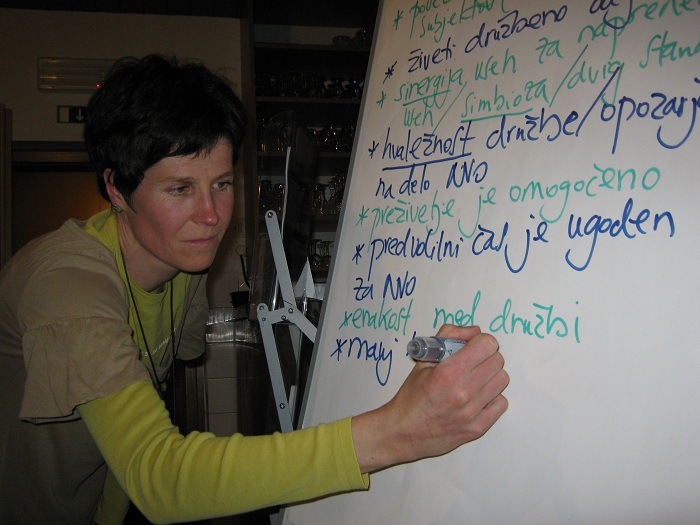 * 
subjektov
* živeti družbeno
* sinergija, vseh za napredek
vseh/simbioza/dvig stand
* hvaležnost družbe/opozarj
na delo NVO
* preživetje je omogočeno
* predvolilni čas je ugoden
za NVO
* enakost med družbi
* manj